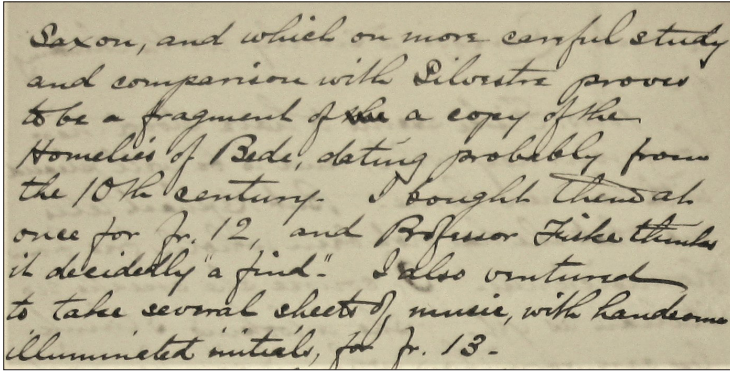 Saxon, and which on more careful study
and comparison with Silvestre proves
to be a fragment of the a copy of the
Homelies of Bede, dating probably from
the 10th century. I bought them at
once for fr. 12, and Professor Fiske thinks
it decidedly "a find". I also ventured
to take several sheets of music, with handsome
illuminated initials, for fr. 13.-